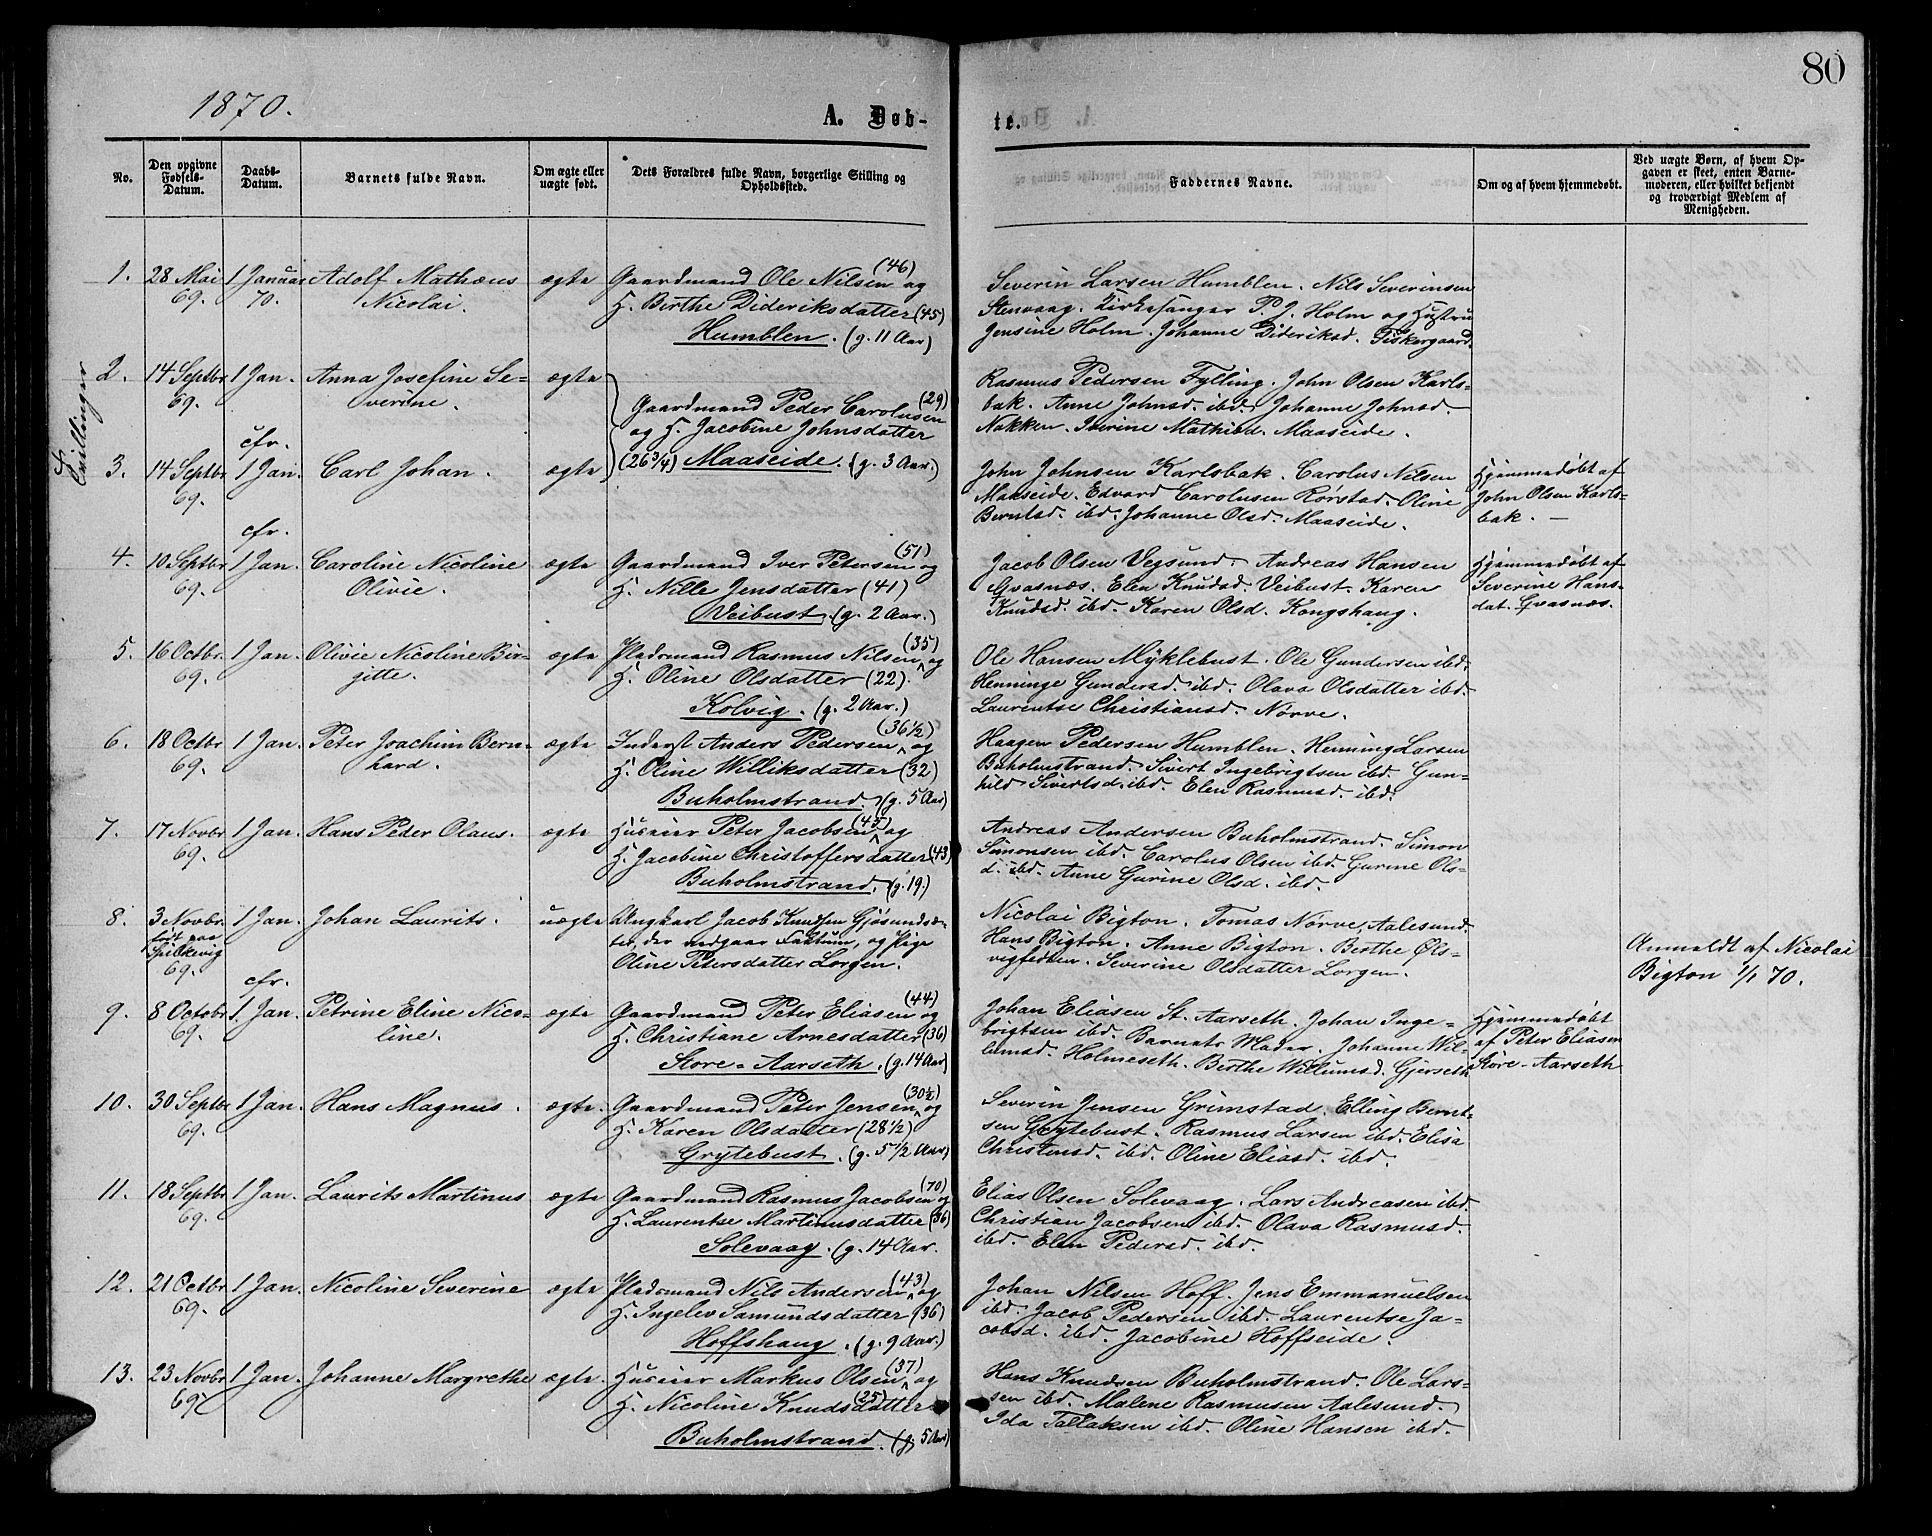 80
1870.
A. Døb-
te.
No.
Den opgivne
Fødsels-
Datum.
Daabs-
Datum.
Barnets fulde Navn.
Om ægte eller
uægte født.
Dets Forældres fulde Navn, borgerlige Stilling og
Opholdssted.
Faddernes Navne.
Om og af hvem hjemmedøbt.
Ved uægte Børn, af hvem Op-
gaven er skeet, enten Barne-
moderen, eller hvilket bekjendt
og troværdigt Medlem af
Menigheden.
1. 28 Mai 1 Januar Adolf Mathæus ægte Gaardmand Ole Nilsen (46) og
69. 70. Nicolai. H. Birthe Dideriksdatter (45)
Humblen. (g. 11 Aar)
Severin Larsen Humblen. Nils Severinsen
Stenvaag. Kirkesanger P. J. Holm og Hustru
Jensine Holm. Johanne Dideriksd. Fiskergaard.
Tvillinger
2. 14 Septbr 1 Jan. Anna Josefine Se- ægte
69. verine.
Gaardmand Peder Carolusen (29)
og H. Jacobine Johnsdatter
(26 3/4) Maaseide. (g. 3 Aar.)
Rasmus Pedersen Fylling. John Olsen Karls-
bak. Anne Johnsd. ibd. Johanne Johnsd.
Nakken. Iverine Mathisd. Maaseide.
cfr.
3. 14 Septbr 1 Jan. Carl Johan. ægte
69.
John Johnsen Karlsbak. Carolus Nilsen
Maaseide. Edvard Carolusen Rørstad. Oline
Berntsd. ibd. Johanne Olsd. Maaseide.
Hjemmedøbt af
John Olsen Karls-
bak. —
cfr.
4. 10 Septbr 1 Jan. Caroline Nicoline ægte Gaardmand Iver Petersen (51) og
69. Olivie. H. Nille Jensdatter (41)
Veibust. (g. 2 Aar.)
Jacob Olsen Vegsund. Andreas Hansen
Gvasnæs. Elen Knudsd. Veibust. Karen
Knudsd. ibd. Karen Olsd. Kongshaug.
Hjemmedøbt af
Severine Hans-
dat. Gvasnæs.
5. 16 Octbr. 1 Jan. Olivie Nicoline Bir- ægte Pladsmand Rasmus Nilsen (35) og
69. gitte. H. Oline Olsdatter (22).
Kolvig. (g. 2 Aar.)
Ole Hansen Myklebust. Ole Gundersen ibd.
Henninge Gundersd. ibd. Olava Olsdatter ibd.
Laurentse Christiansd. Nørve.
6. 18 Octbr. 1 Jan. Peter Joachim Bern- ægte Inderst Anders Pedersen (36 1/2) og
69. hard. H. Oline Williksdatter (32)
Buholmstrand. (g. 5 Aar)
Haagen Pedersen Humblen. Henning Larsen
Buholmstrand. Sivert Ingebrigtsen ibd. Gun-
hild Sivertsd. ibd. Elen Rasmusd. ibd.
7. 17 Novbr. 1 Jan. Hans Peder Olaus. ægte Huseier Peter Jacobsen (45) og
69. H. Jacobine Christoffersdatter (43
Buholmstrand. (g. 19.)
Andreas Andersen Buholmstrand. Simon
Simonsen ibd. Carolus Olsen ibd. Gurine Ols-
d. ibd. Anne Gurine Olsd. ibd.
8. 3 Novbr. 1 Jan. Johan Laurits. uægte Ungkarl Jacob Knudsen Gjøsundsæ-
født paa ter, der vedgaar Factum, og Pige
Spilkevig Oline Petersdatter Lorgen.
69.
Nicolai Bigton. Tomas Nørve, Aalesund.
Hans Bigton. Anne Bigton. Berthe Øls-
vigfedten. Severine Olsdatter Lorgen.
Anmeldt af Nicolai
Bigton 1/1 70.
cfr.
9. 8 Octobr. 1. Jan. Petrine Eline Nico- ægte Gaardmand Peter Eliasen (44) og
69. line. H. Christiane Arnesdatter (36)
Store-Aarseth. (g. 14 Aar)
Johan Eliasen St. Aarseth. Johan Inge-
brigtsen ibd. Barnets Moder. Johanne Wil-
lumsd. Holmeseth. Berthe Willumsd. Gjerseth
Hjemmedøbt
af Peter Eliasen
Store-Aarseth
10. 30 Septbr 1 Jan. Hans Magnus. ægte. Gaardmand Peter Jensen (30 1/2) og
69. H. Karen Olsdatter (28 1/2)
Grytebust. (g. 5 1/2 Aar)
Severin Jensen Grimstad. Elling Bernt-
sen Grytebust. Rasmus Larsen ibd. Elisa
Christensd. ibd. Oline Eliasd. ibd.
11. 18 Septbr 1 Jan. Laurits Martinus ægte Gaardmand Rasmus Jacobsen (70) og
69. H. Laurentse Martinusdatter (36)
Solevaag. (g. 14 Aar.
Elias Olsen Solevaag. Lars Andreasen ibd.
Christian Jacobsen ibd. Olava Rasmusd.
ibd. Elen Pedersd. ibd.
12. 21 Octbr 1 Jan. Nicoline Severine ægte Pladsmand Nils Andersen (43) og
69. H. Ingelev Samundsdatter (36)
Hoffshaug. (g. 9 Aar.)
Johan Nilsen Hoff. Jens Emmanuelsen
ibd. Jacob Pedersen ibd. Laurentse Ja-
cobsd. ibd. Jacobine Hoffseide.
13. 23 Novbr. 1 Jan. Johanne Margrethe ægte. Huseier Markus Olsen (37) og
69. H. Nicoline Knudsdatter (25)
Buholmstrand. (g. 5 Aar)
Hans Knudsen Buholmstrand. Ole Lars-
sen ibd. Malene Rasmusen Aalesund.
Ida Tallaksen ibd. Oline Hansen ibd.